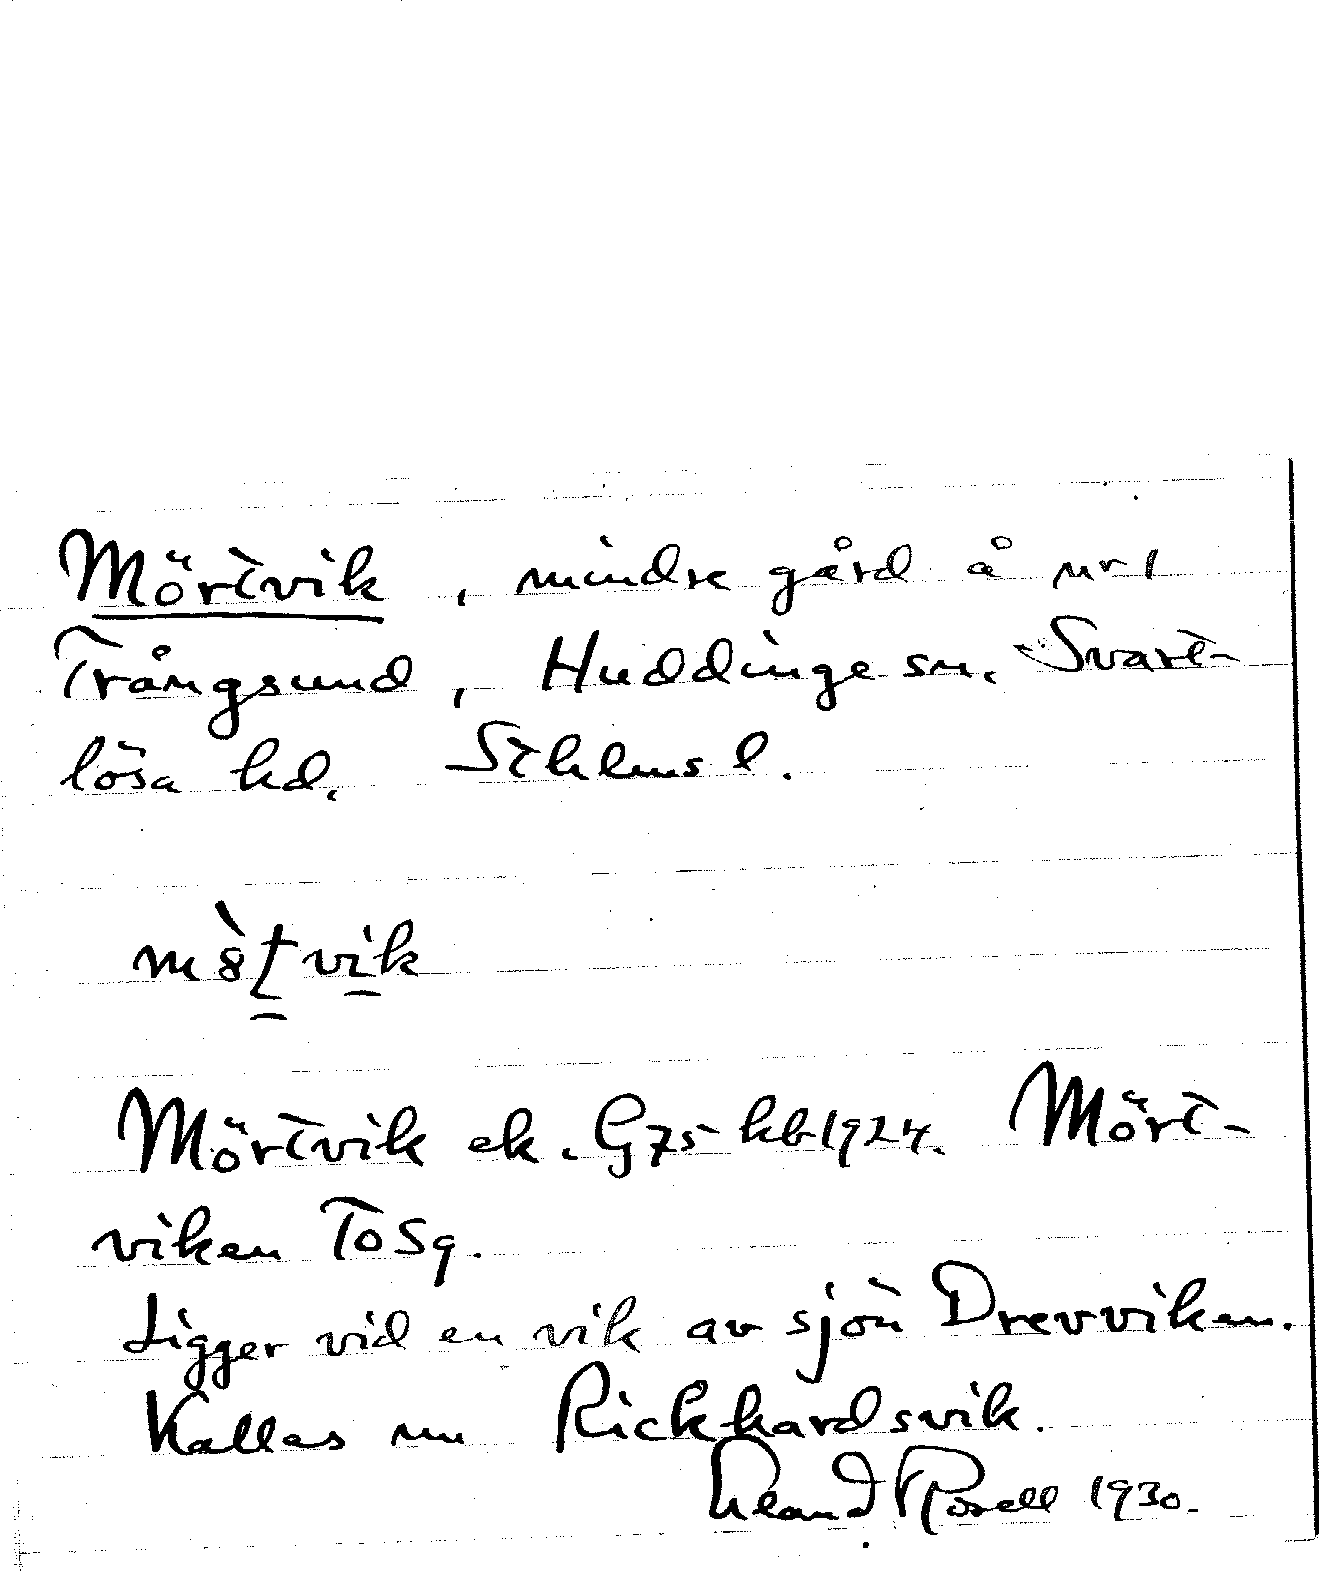 Mörtvik, mindre gård å nr 1
Trångsund, Huddinge sn. Svart-
lösa hd. Sthlms l.
Mörtvik ek. G75 kb 1924. Mört-
viken To Sq.
Ligger vid en vik av sjön Drevviken.
Kallas nu Rickhardsvik.
Rosell 1930.